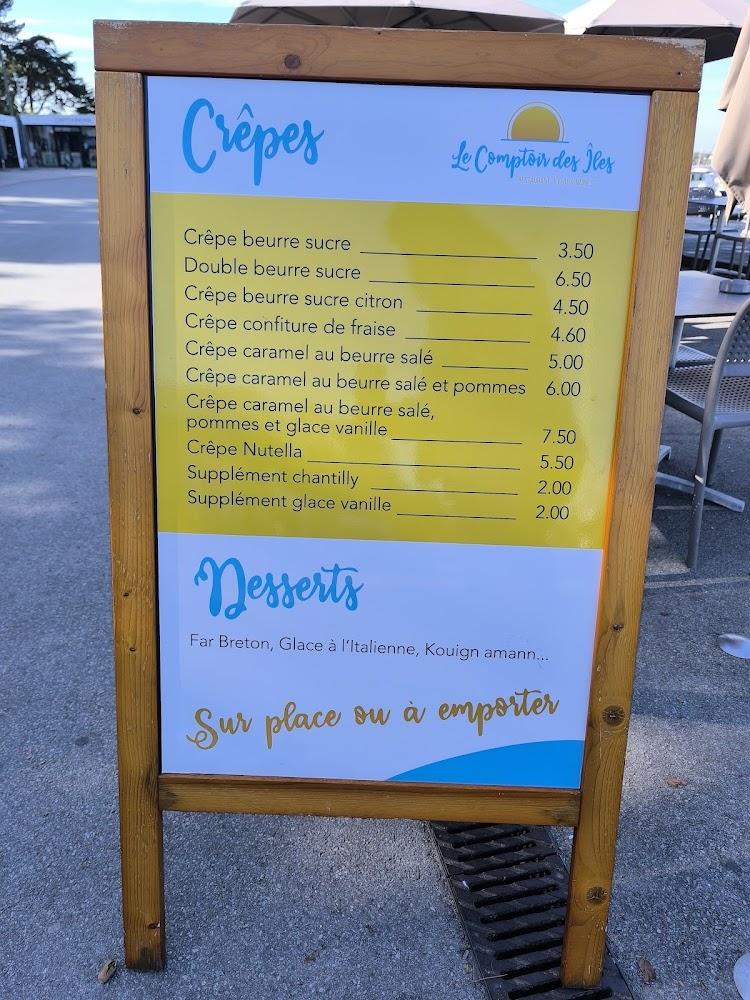 Crêpes
Le Comptoir des Îles
Crêpe beurre sucre 3.50
Double beurre sucre 6.50
Crêpe beurre sucre citron 4.50
Crêpe confiture de fraise 4.60
Crêpe caramel au beurre salé 5.00
Crêpe caramel au beurre salé et pommes 6.00
Crêpe caramel au beurre salé,
pommes et glace vanille 7.50
Crêpe Nutella 5.50
Supplément chantilly 2.00
Supplément glace vanille 2.00
Desserts
Far Breton, Glace à l'Italienne, Kouign amann...
Sur place ou à emporter